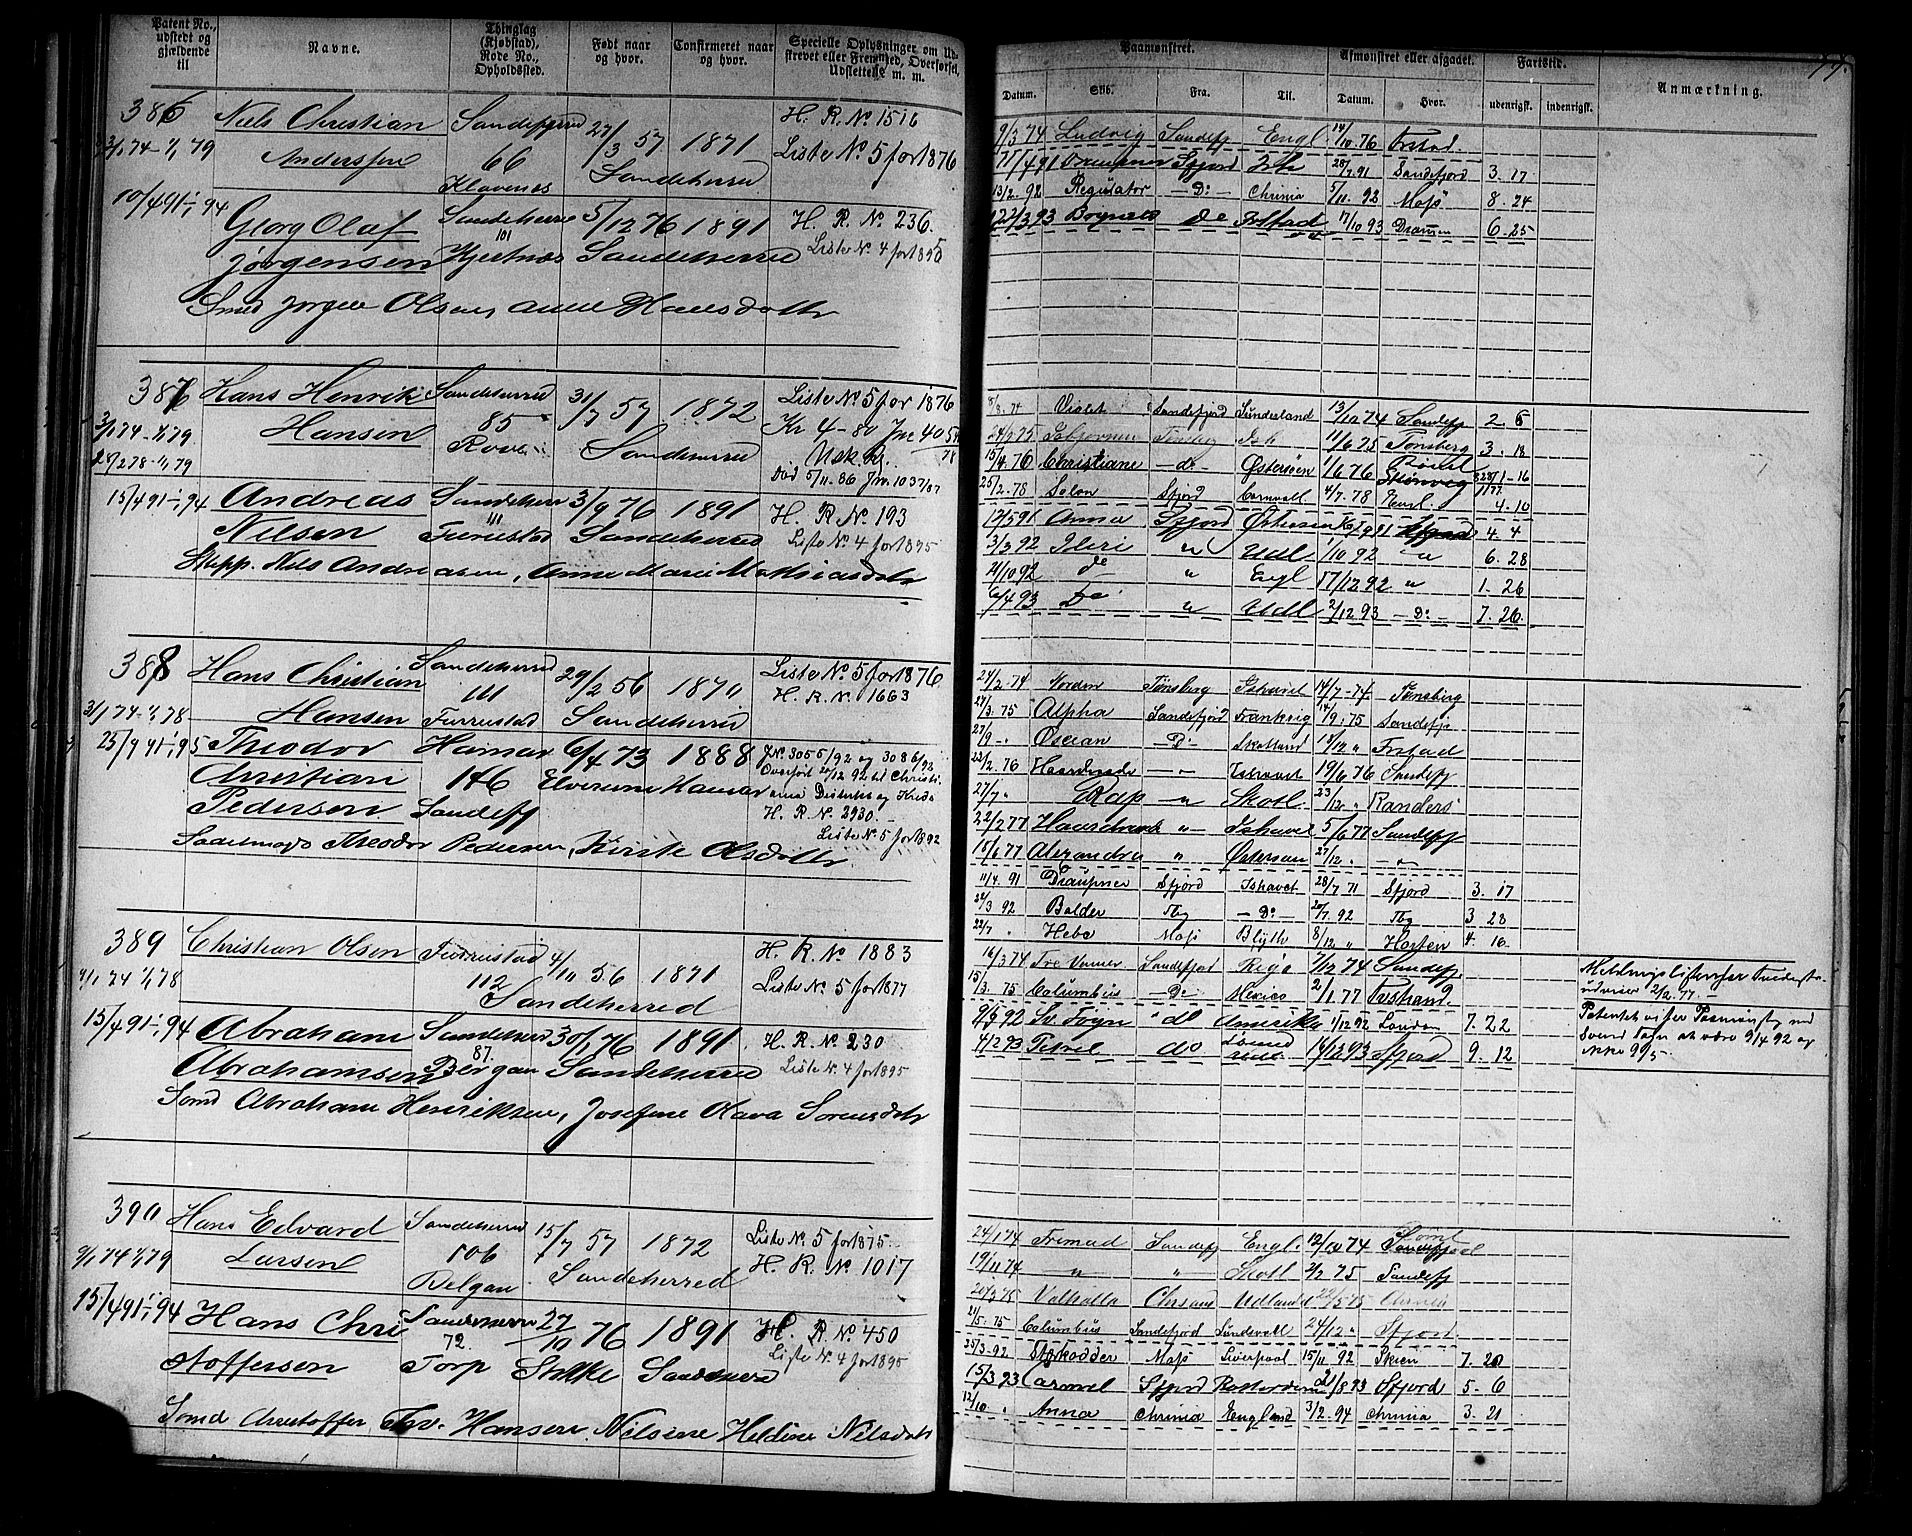 Patent No., udstedt og gjældende til
Navne.
Thinglag (Kjøbstad), Rode No., Opholdssted.
Født naar og hvor.
Confirmeret naar og hvor.
Specielle Oplysninger om Udstrevet eller Fremmed, Overførsel, Udslettelse m. m.
386 Niels Christian Sandeherred 27/3 57 1871 H. R. No 1516
3/1 74 - 1/1 79 Anderssen 66 Liste No 5 for 1876
Klavenes Sandeherred
10/4 91 - 1/1 94 Georg Olaf Sandeherre 5/12 76 1891 H. R. No. 236.
101 Liste No. 4 for 1895
Jørgensen Hjertnæs Sandeherred
Smed Jørgen Olsen, Anne Hansdatter
387 Hans Henrik Sandeherred 31/7 57 1872 Liste No 5 for 1876
3/1 74 - 1/1 79 Hansen 85 Kr 4-80 Jnr 40
Sandeherred
28/2 78 - 1/1 79 Død 5/11. 86 Jnr. 1037/87
15/4 91 - 1/1 94 Andreas Sandeherr 3/9 76 1891 H. R. No 193
Nilsen 111 Furustad Sandeherred Liste No. 4 for 1895
Skipp. Nils Andreasen, Anne Marie Mathiasdatr
388 Hans Christian Sandeherred 29/2 56 1870 Liste No 5 for 1876
111 H. R. No. 1663
3/1 74 - 1/1 78 Hansen Furrustad Sandeherred
25/9 91 - 1/1 95 Theodor Hamar 6/4 73 1888 J.No. 3055/92 og 3086/92
Christian 146 Elverum Hamar Overført 21/12 92 til Christi
ania Distrikt og Kreds
Pedersen Sandefj H. R. No. 2930.
Liste No. 5 for 1892
Sadelmager Theodor Pedersen, Kirsti Olsdatter
389 Christian Olsen Furrustad 4/11 56 1871 H. R. No 1883
9/1 74 1/1 78 112 Liste No. 5 for 1877
Sandeherred
15/4 91 - 1/1 94 Abraham Sandeherred 30/1 76 1891 H. R. No 230
Abrahamsen 87. Bergan Sandeherred Liste No. 4 for 1895
Smd Abraham Henriksen, Josefine Olava Sørensdatr
390 Hans Edvard Sandeherred 15/7 57 1872 Liste No. 5 for 1875.
9/1 74 1/1 79 Larsen 106 H. R. No 1017
Bergan Sandeherred
15/4 91 - 1/1 94 Hans Chri Sandeherre 27/10 76 1891 H. R. No 450
stoffersen 72. Torp Stokke Sandeherred Liste No. 4 for 1895
Smd Christoffer Hansen, Nilsine Heldine Nilsdatr
77.
Paamønstret. Afmønstret eller afgaaet. Fartstid. Anmærkning.
Datum. Skib. Fra. Til. Datum. Hvor. udenrigst. indenrigst.
9/3 74 Ludvig Sandefj Engl. 14/10 76 Frstad.
Draupner Sfjord Ish 28/7 91 Sandefjord 3. 17
13/2. 92 Regulator - Do - Chrinia 5/11. 92 Moss 8. 24
do 17/10 93 Drammen 6. 25
Violet Sandefjord Sunderland 13/10 74 Sandefj 2 6
24/2 75 Ish 11/6 75 Tønsberg 3. 18
15/4. 76 Christiane - do - Østersøen 1/6 76
25/2. 78 Solon Sfjord Cornvall 4/7. 78 4. 10
Anna Sfjord Østersøen 4. 4
3/3 92 Ideri " Udl 1/10 92 " 6. 28
21/10 92 do " Engl 17/12 92 " 1. 26
6/4 93 Do " Udl 2/12 93 - Do - 7. 26.
24/2. 74 Norden Tønsberg Ishavet 14/7 - 74 Tønsberg
27/3. 75 Alpha Sandefjord Frankrig 14/9. 75 Sandefj
27/9 " Oscean - Do - Skotland 18/12 " Frstad
22/2. 76 - " - Ishavet 19/6 76 Sandefj
27/7 " Rap - " Skotl. 23/12 " Randers
22/2 77 " Ishavet 5/6 77 Sandefj
15/6 77 Alexandra " Østersøen 27/12. " - " -
11/4. 91 Draupner Sfjord Ishavet 28/7 71 Sfjord 3. 17
21/3 92 Balder Tbg - Do - 20/7. 92 Tbg 3 28
22/7 " Hebe Moss Blyth 8/12 " Horten 4. 16.
16/3 74 Tre Venner Sandefjord Riga 7/12 74 Sandefj.
15/3. 75 Columbus - Do - Mexico 2/1. 77
9/5 92 Sv. Foyn " do Amerika 11/12 92 London 7. 22
4/2 93 do 14/12 93 Sfjord 9. 12
24/1 74 Fremad Sandefj Engl. 12/10 74
19/11 74 " " Skotl 2/2 75 Sandefj
Valhalla Chrsand Udlandet 22/5 75 Chrinia
21/5. 75 Columbus Sandefjord Sundsvall 24/12 " Sfjord
25/3 - 92 Moss Liverpool 15/11. 92 Skien 7. 20
15/3 93 Carmel Sfjord 21/8 93 Sfjord 5. 6
12/10 " Anna Chrinia England 3/2. 94 Chrinia 3. 21